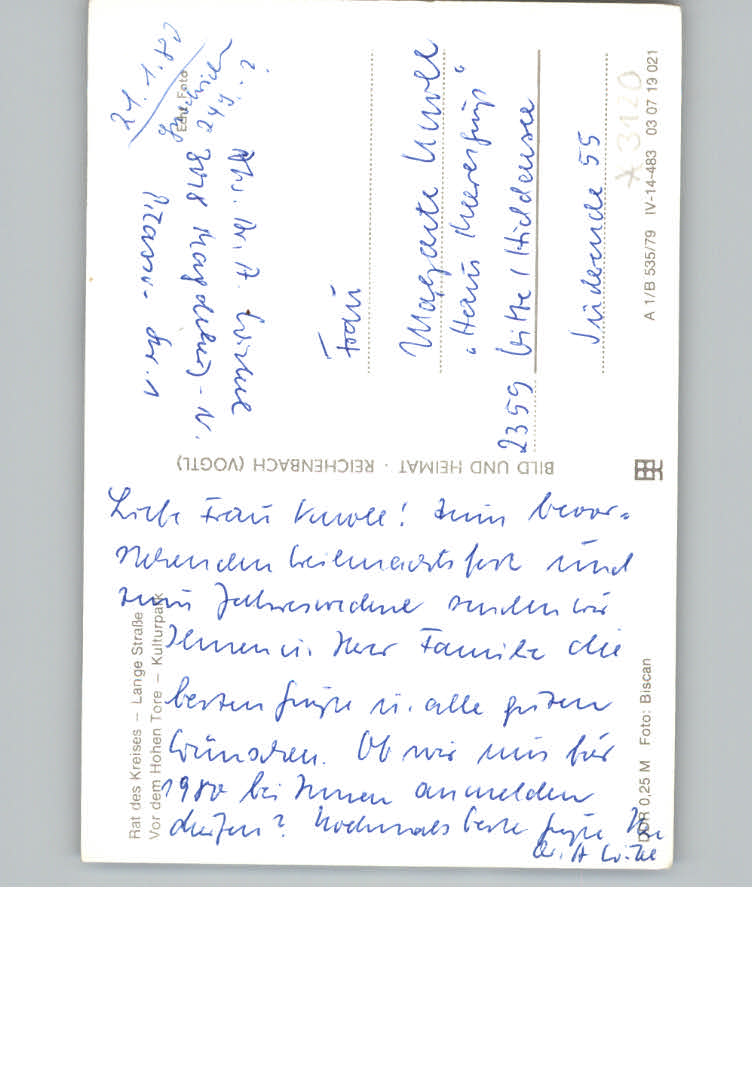 Liebe Frau Knoll! Zum bevor-
stehenden Weihnachtsfest und
zum Jahreswechsel senden wir
Ihnen u. Ihrer Familie die
besten Grüße u. alle guten
Wünsche. Ob wir uns für
1980 bei Ihnen anmelden
dürfen? Nochmals beste Grüße Ihr
Dr. A.
Rat des Kreises – Lange Straße
Vor dem Hohen Tore – Kulturpark
DDR 0,25 M Foto: Biscan
BILD UND HEIMAT · REICHENBACH (VOGTL)
21.1.80
Echt Foto
Abs. Dr. A.
Magdeburg-N.
Pizarro-Str. 1
Frau
Margarete Knoll
"Haus Meeresgruß"
2359 Vitte / Hiddensee
Süderende 55
A 3120
A 1/B 535/79 IV-14-483 03 07 19 021